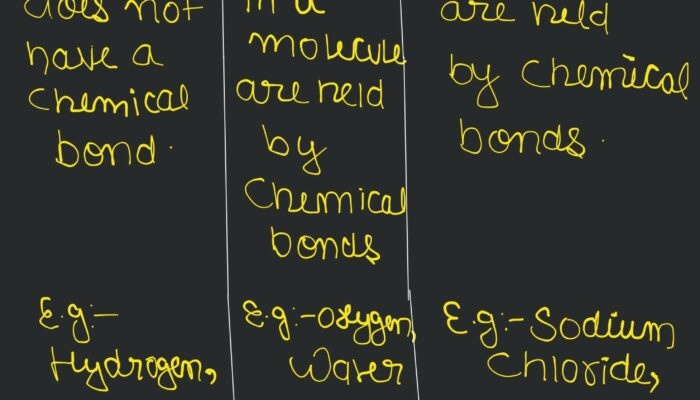 does not
have a
chemical
bond.
E.g:-
Hydrogen,
in a
molecule
are held
by
Chemical
bonds
E.g:-Oxygen,
Water
are held
by Chemical
bonds.
E.g:-Sodium
Chloride,